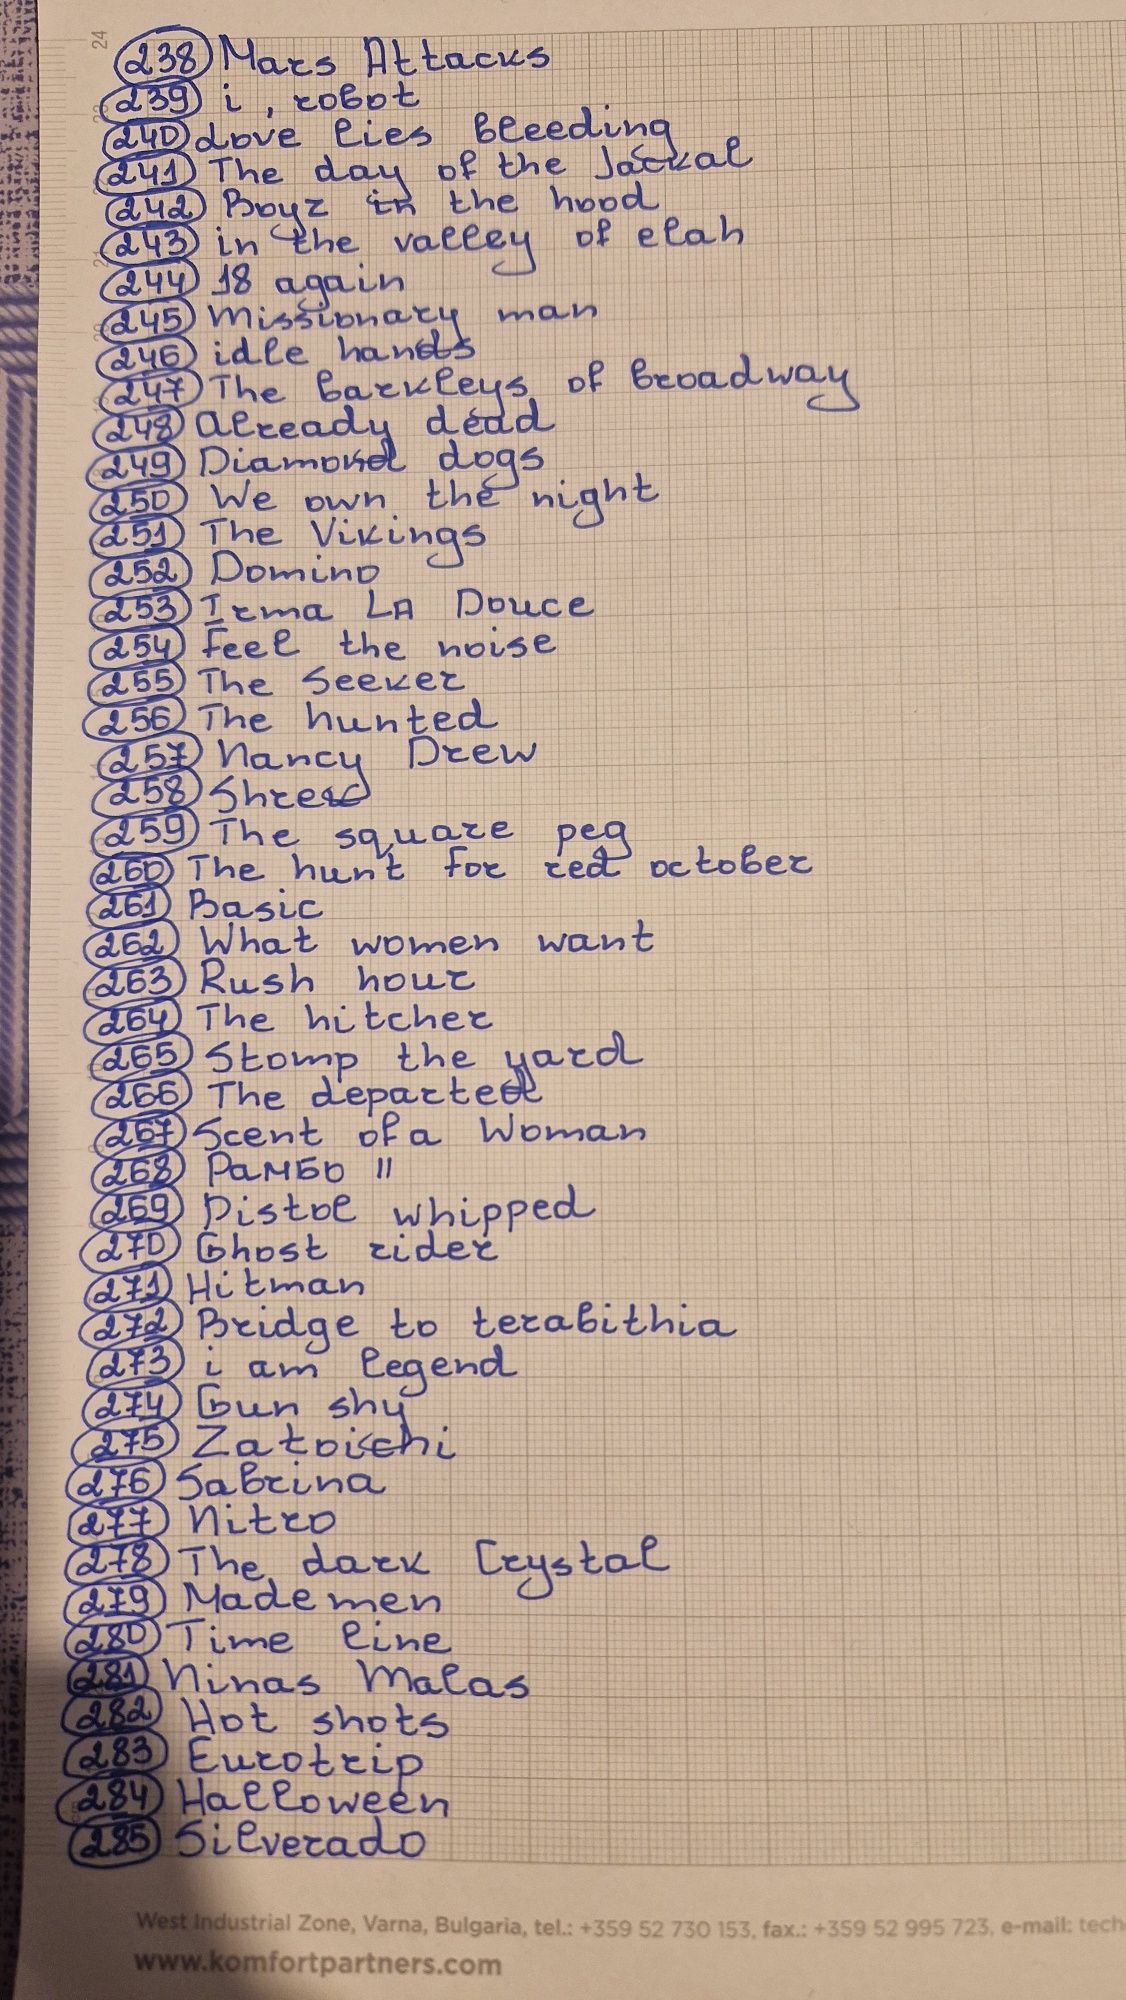 24
238 Mars Attacks
239 i, robot
240 Love lies bleeding
241 The day of the Jackal
242 Boyz in the hood
243 in the valley of elah
244 18 again
245 Missionary man
246 idle hands
247 The barkleys of broadway
248 Already dead
249 Diamond dogs
250 We own the night
251 The Vikings
252 Domino
253 Irma LA Douce
254 Feel the noise
255 The Seeker
256 The hunted
257 Nancy Drew
258 Shred
259 The square peg
260 The hunt for red october
261 Basic
262 What women want
263 Rush hour
264 The hitcher
265 Stomp the yard
266 The departed
267 Scent of a Woman
268 Рамбо II
269 Pistol whipped
270 Ghost rider
271 Hitman
272 Bridge to terabithia
273 i am legend
274 Gun shy
275 Zatoichi
276 Sabrina
277 Nitro
278 The dark Crystal
279 Made men
280 Time line
281 Ninas Malas
282 Hot shots
283 Eurotrip
284 Halloween
285 Silverado
West Industrial Zone, Varna, Bulgaria, tel.: +359 52 730 153, fax.: +359 52 995 723, e-mail: tech
www.komfortpartners.com